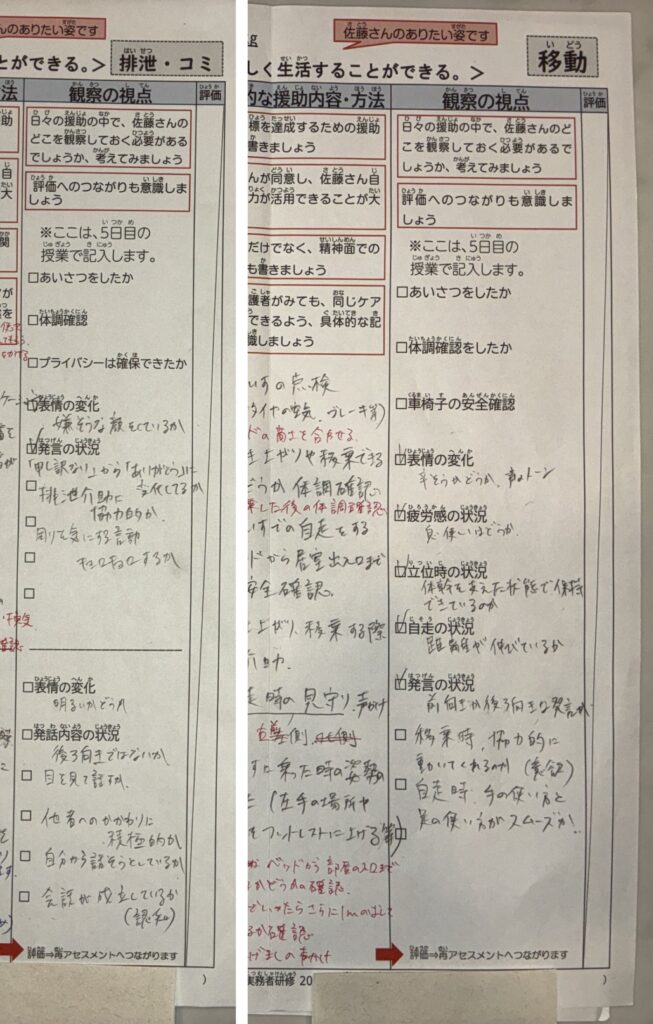 んのありたい姿です
ことができる。＞
排泄・コミ
法
観察の視点
評価
日々の援助の中で、佐藤さんの
どこを観察しておく必要がある
でしょうか、考えてみましょう
評価へのつながりも意識しま
しょう
※ここは、5日目の
授業で記入します。
□あいさつをしたか
□体調確認
□プライバシーは確保できたか
☑表情の変化
嫌そうな顔をしているか
☑発言の状況
「申し訳ない」から「ありがとう」に
変化してるか
□排泄介助に
協力的か
□周りを気にする言動
□キョロキョロするか
□
□表情の変化
明るいかどうか
□発話内容の状況
後ろ向きではないか
□目を見て話すか
□他者へのかかわりに
積極的か
□自分から話そうとしているか
□会話が成立しているか
(認知)
評価⇒再アセスメントへつながります
)
佐藤さんのありたい姿です
しく生活することができる。＞
移動
的な援助内容・方法
観察の視点
評価
標を達成するための援助
書きましょう
んが同意し、佐藤さん自
力が活用できることが大
だけでなく、精神面での
も書きましょう
護者がみても、同じケア
できるよう、具体的な記
識しましょう
いすの点検
タイヤの空気、ブレーキ等)
ドの高さを合わせる
き上がりや移乗できる
どうか 体調確認
乗した後の体調確認
いすでの自走をする
ドから居室出入口まで
安全確認
上がり、移乗する際
介助.
走時の見守り、声かけ
すに乗った時の姿勢の
(左手の場所や
をフットレストに上げる等)
ベッドから部屋の入口まで
かどうかの確認.
でいったらさらに1mのばして
るか確認
げましの声かけ
日々の援助の中で、佐藤さんのど
こを観察しておく必要があるで
しょうか、考えてみましょう
評価へのつながりも意識しま
しょう
※ここは、5日目の
授業で記入します。
□あいさつをしたか
□体調確認をしたか
□車椅子の安全確認
☑表情の変化
辛そうかどうか、声のトーン
☑疲労感の状況
息使いはどうか
☑立位時の状況
体幹を支えた状態で保持
できているのか
☑自走の状況
距離が伸びているか
☑発言の状況
前向きか後ろ向きな発言か
□移乗時、協力的に
動いてくれるのか(意欲)
□自走時、手の使い方と
足の使い方がスムーズか.
□
評価⇒再アセスメントへつながります
)
実務者研修 20